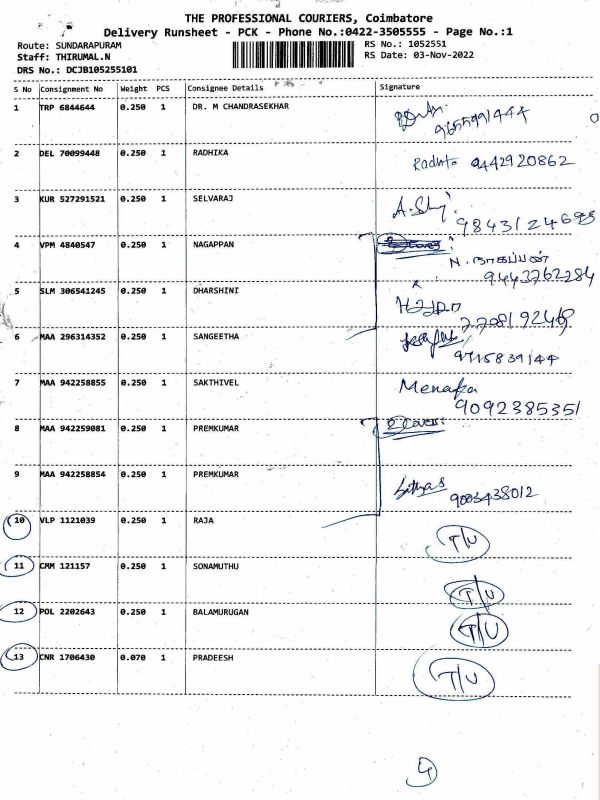 THE PROFESSIONAL COURIERS, Coimbatore
Delivery Runsheet - PCK - Phone No.:0422-3505555 - Page No.:1
Route: SUNDARAPURAM
RS No.: 1052551
Staff: THIRUMAL.N
RS Date: 03-Nov-2022
DRS No.: DCJB105255101
S No Consignment No Weight PCS Consignee Details Signature
1 TRP 6844644 0.250 1 DR. M CHANDRASEKHAR
2 DEL 70099448 0.250 1 RADHIKA 9442920862
3 KUR 527291521 0.250 1 SELVARAJ
4 VPM 4840547 0.250 1 NAGAPPAN
N. நாகப்பன்
9443762284
5 SLM 306541245 0.250 1 DHARSHINI
6 MAA 296314352 0.250 1 SANGEETHA
9715839144
7 MAA 942258855 0.250 1 SAKTHIVEL Menaka
9092385351
8 MAA 942259081 0.250 1 PREMKUMAR 2 Cover:
9 MAA 942258854 0.250 1 PREMKUMAR
9003438012
10 VLP 1121039 0.250 1 RAJA T/U
11 CMM 121157 0.250 1 SONAMUTHU T/U
12 POL 2202643 0.250 1 BALAMURUGAN T/U
13 CNR 1706430 0.070 1 PRADEESH T/U